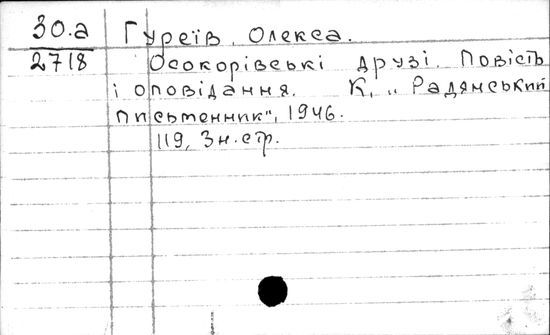 30.а Гуреїв, Олекса.
2718 Осокорівські друзі. Повість
і оповідання. К., „Радянський
письменник", 1946.
119, 3 н. стр.